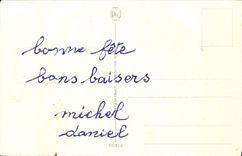 bonne fête
bons baisers
michel
daniel